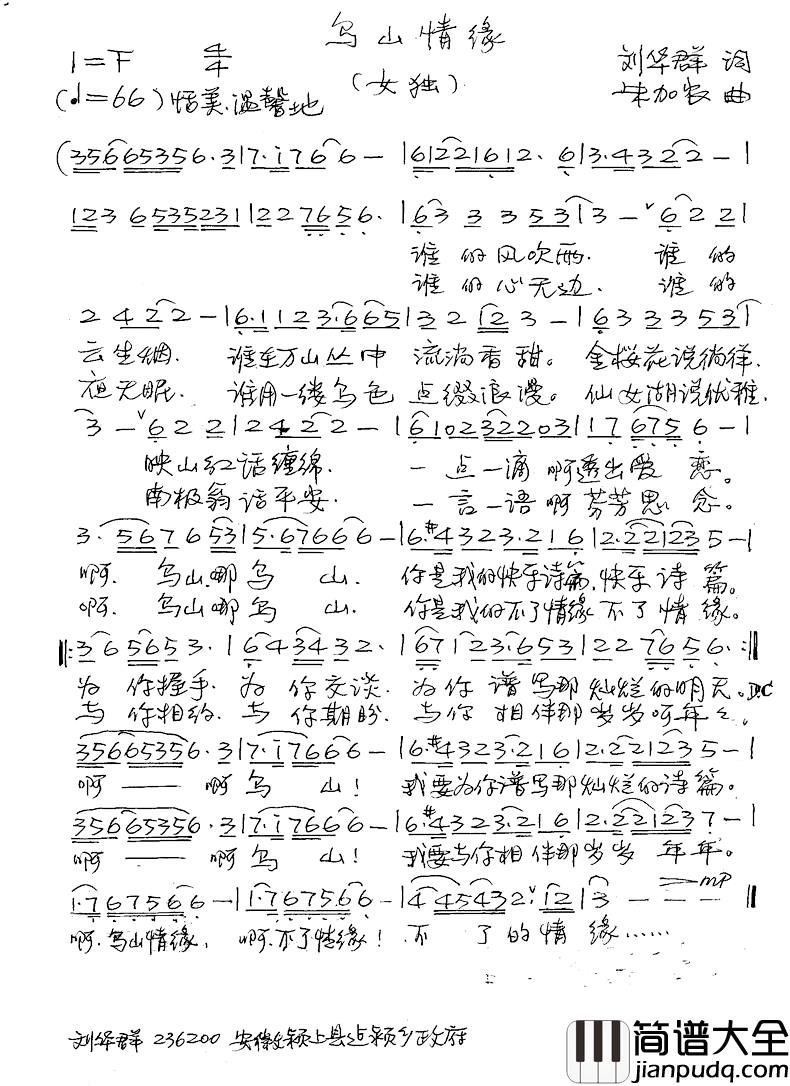 乌山情缘
1=F 4/4
(女独)
刘华群 词
朱加农 曲
(♩=66) 恬美.温馨地
(35665356.3|7.i766-|61221612.6|3.4322-|
123 6535231|227656.|633353|3-ˇ622|
谁的风吹雨. 谁的
谁的心无边. 谁的
2422-|6.1123.665|32123-|6333353|
云生烟. 谁在万山丛中 流淌香甜。 金桜花说徜徉.
夜无眠. 谁用一缕乌色 点缀浪漫。 仙女湖说优雅.
3-ˇ622|2422-|6102322203|176756-|
映山红话缠绵. 一点一滴啊透出爱恋。
南极翁话平安. 一言一语啊芬芳思念。
3.567653|5.67666-|6.#4323.216|2.221235-|
啊. 乌山哪乌山. 你是我的快乐诗篇.快乐诗篇。
啊. 乌山哪乌山. 你是我的不了情缘不了情缘。
‖:365653.|643432.|67123.653|227656.:‖
为你握手.为你交谈.为你谱写那灿烂的明天。D.C
与你相约.与你期盼.与你相伴那岁岁呵年年.
356653356.3|7.i7666-|6.#4323.216|2.221235-|
啊——啊乌山! 我要为你谱写那灿烂的诗篇。
356653356.3|7.i7666-|6.#4323.216|2.221237-|
啊——啊乌山! 我要与你相伴那岁岁年年。
1.767566-|1.7675.66-|445432.ˇ12|3--- mp‖
啊.乌山情缘, 啊.不了情缘! 不了的情缘……
刘华群 236200 安徽颍上县
乡政府
简谱大全
jianpudq.com